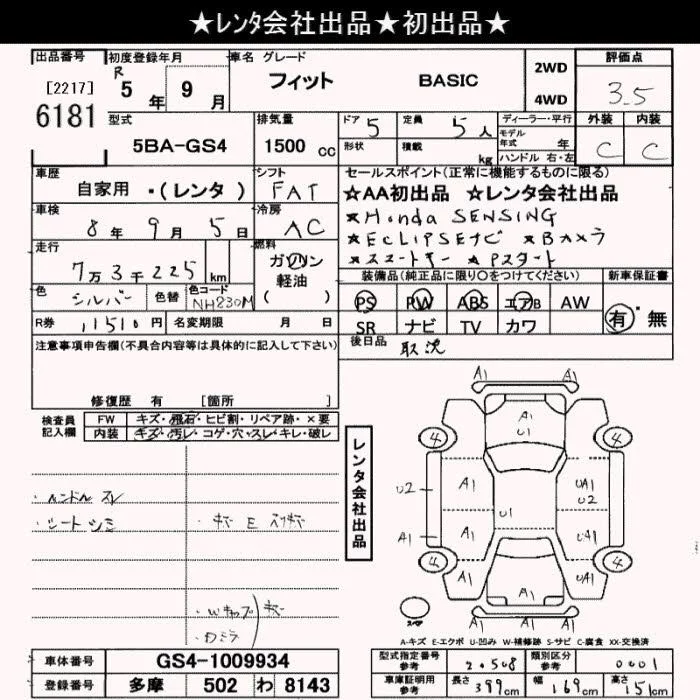 ★レンタ会社出品★初出品★
出品番号 初度登録年月 車名 グレード 評価点
[2217] R 5年 9月 フィット BASIC 2WD 3.5
6181 4WD
型式 排気量 ドア 5 定員 5人 ディーラー・平行 外装 内装
5BA-GS4 1500cc 形状 積載 kg モデル年式 年 C C
ハンドル 右・左
車歴 シフト セールスポイント(正常に機能するものに限る)
自家用 ・(レンタ) FAT ☆AA初出品 ☆レンタ会社出品
車検 冷房 ★Honda SENSING
8年 9月 5日 AC ★ECLIPSEナビ ★Bカメラ
走行 燃料 ★スマートキー ★Pスタート
7万3千225km ガソリン 軽油 ( ) 装備品(純正品に限り○をつけてください) 新車保証書
色 シルバー 色替 色コード NH830M PS PW ABS エアB AW 有・無
R券 11510円 名変期限 月 日 SR ナビ TV カワ
注意事項申告欄(不具合内容等は具体的に記入して下さい) 後日品 取説
修復歴 有 [箇所 ]
検査員記入欄 FW キズ・飛石・ヒビ割・リペア跡・×要
内装 キズ・汚レ・コゲ・穴・スレ・キレ・破レ
・ハンドル スレ
・シート シミ
レンタ会社出品
A1
A1
4 U1 4
A1 UA1
U2 U2
U1
A1 A1 UA1
4 A1 UA1 4
A1
A1
スペア
A-キズ E-エクボ U-凹み W-補修跡 S-サビ C-腐食 XX-交換済
車体番号 GS4-1009934 型式指定番号 参考 20508 類別区分 参考 0001
登録番号 多摩 502 わ 8143 車庫証明用 参考 長さ 399cm 幅 169cm 高さ 151cm